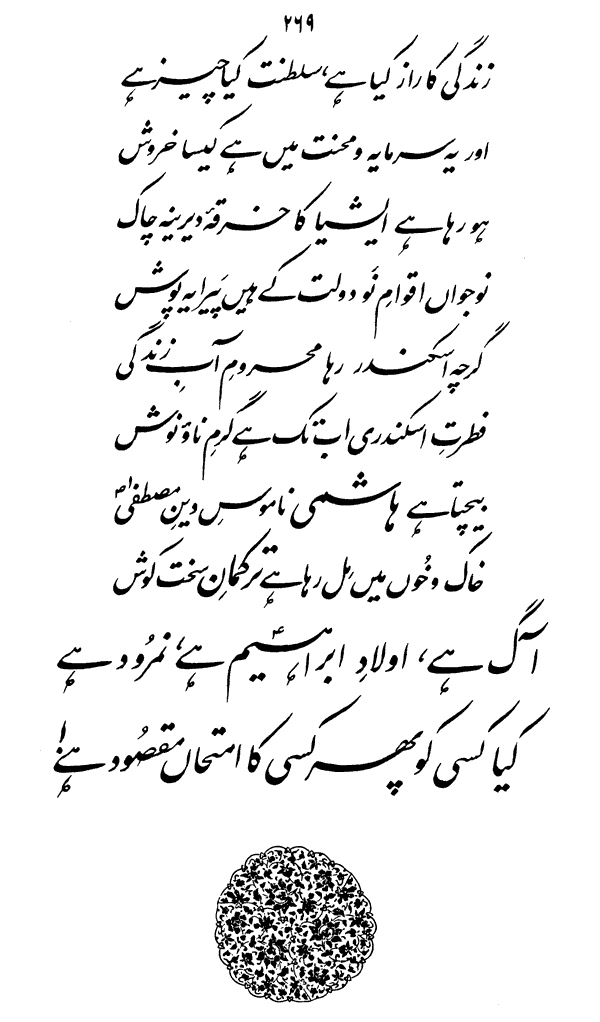 ۲۶۹
زندگی کا راز کیا ہے، سلطنت کیا چیز ہے
اور یہ سرمایہ و محنت میں ہے کیسا خروش
ہو رہا ہے ایشیا کا خرقۂ دیرینہ چاک
نوجواں اقوامِ نَو دولت کے ہیں پَیرایہ پوش
گرچہ اسکندر رہا محرومِ آبِ زندگی
فطرتِ اسکندری اب تک ہے گرمِ ناؤ نوش
بیچتا ہے ہاشمی ناموسِ دینِ مصطفیٰؐ
خاک و خُوں میں مِل رہا ہے ترکمانِ سخت کوش
آگ ہے، اولادِ ابراہیمؑ ہے، نمرُود ہے
کیا کسی کو پھر کسی کا امتحاں مقصُود ہے!